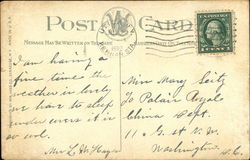 POST CARD
MESSAGE MAY BE WRITTEN ON THIS SIDE
I am having a
fine time the
weather is lovely
we har to sleep
under covers it is
so cool.
Mrs L. W. Hayes
Miss Mary City
To Palais Royal
China Dept.
11 & G st N. W.
Washington
D.C.